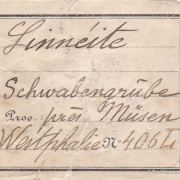 Linneite
Schwabengrube
Prov. près Müsen
Westphalie No 406L